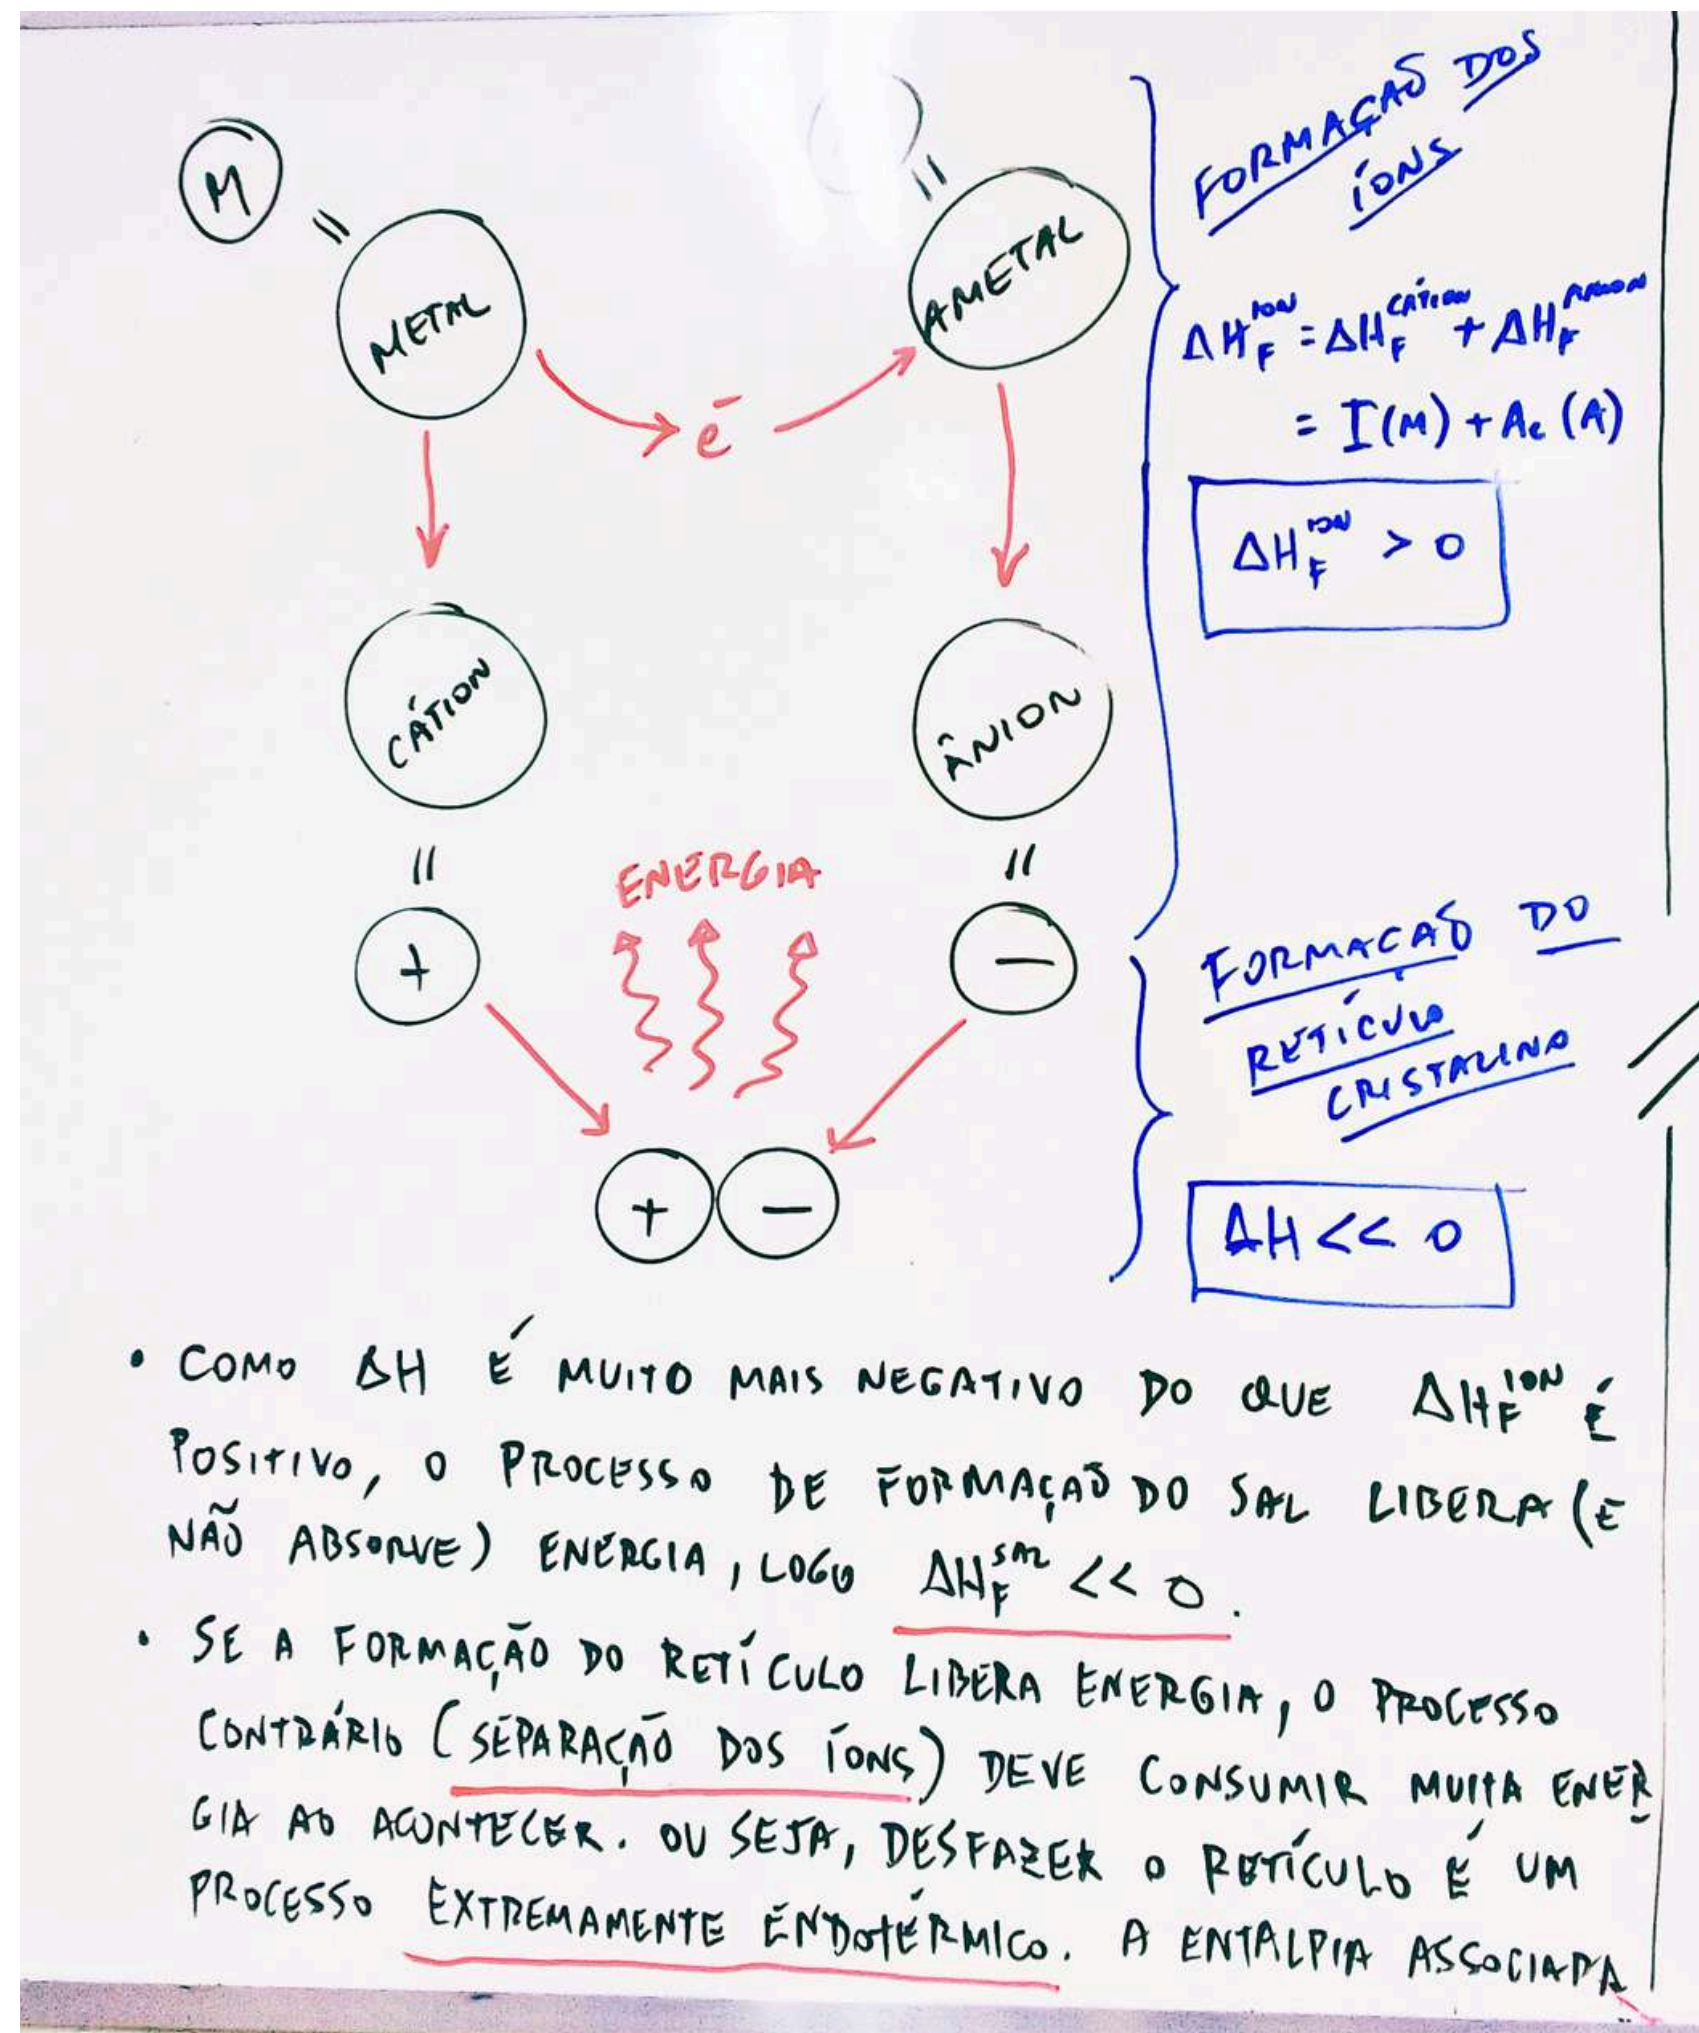 M
=
METAL
=
AMETAL
e⁻
CÁTION
ÂNION
=
=
+
−
ENERGIA
+ −
FORMAÇÃO DOS
ÍONS
ΔH_F^ION = ΔH_F^CÁTION + ΔH_F^ÂNION
= I(M) + Ae (A)
ΔH_F^ION > 0
FORMACAÕ DO
RETÍCULO
CRISTALINO
ΔH << 0
• COMO ΔH É MUITO MAIS NEGATIVO DO QUE ΔH_F^ION É
POSITIVO, O PROCESSO DE FORMAÇAÕ DO SAL LIBERA (E
NÃO ABSORVE) ENERGIA, LOGO ΔH_F^SAL << 0.
• SE A FORMAÇÃO DO RETÍCULO LIBERA ENERGIA, O PROCESSO
CONTRÁRIO (SEPARAÇÃO DOS ÍONS) DEVE CONSUMIR MUITA ENER
GIA AO ACONTECER. OU SEJA, DESFAZER O RETÍCULO É UM
PROCESSO EXTREMAMENTE ENDOTÉRMICO. A ENTALPIA ASSOCIADA